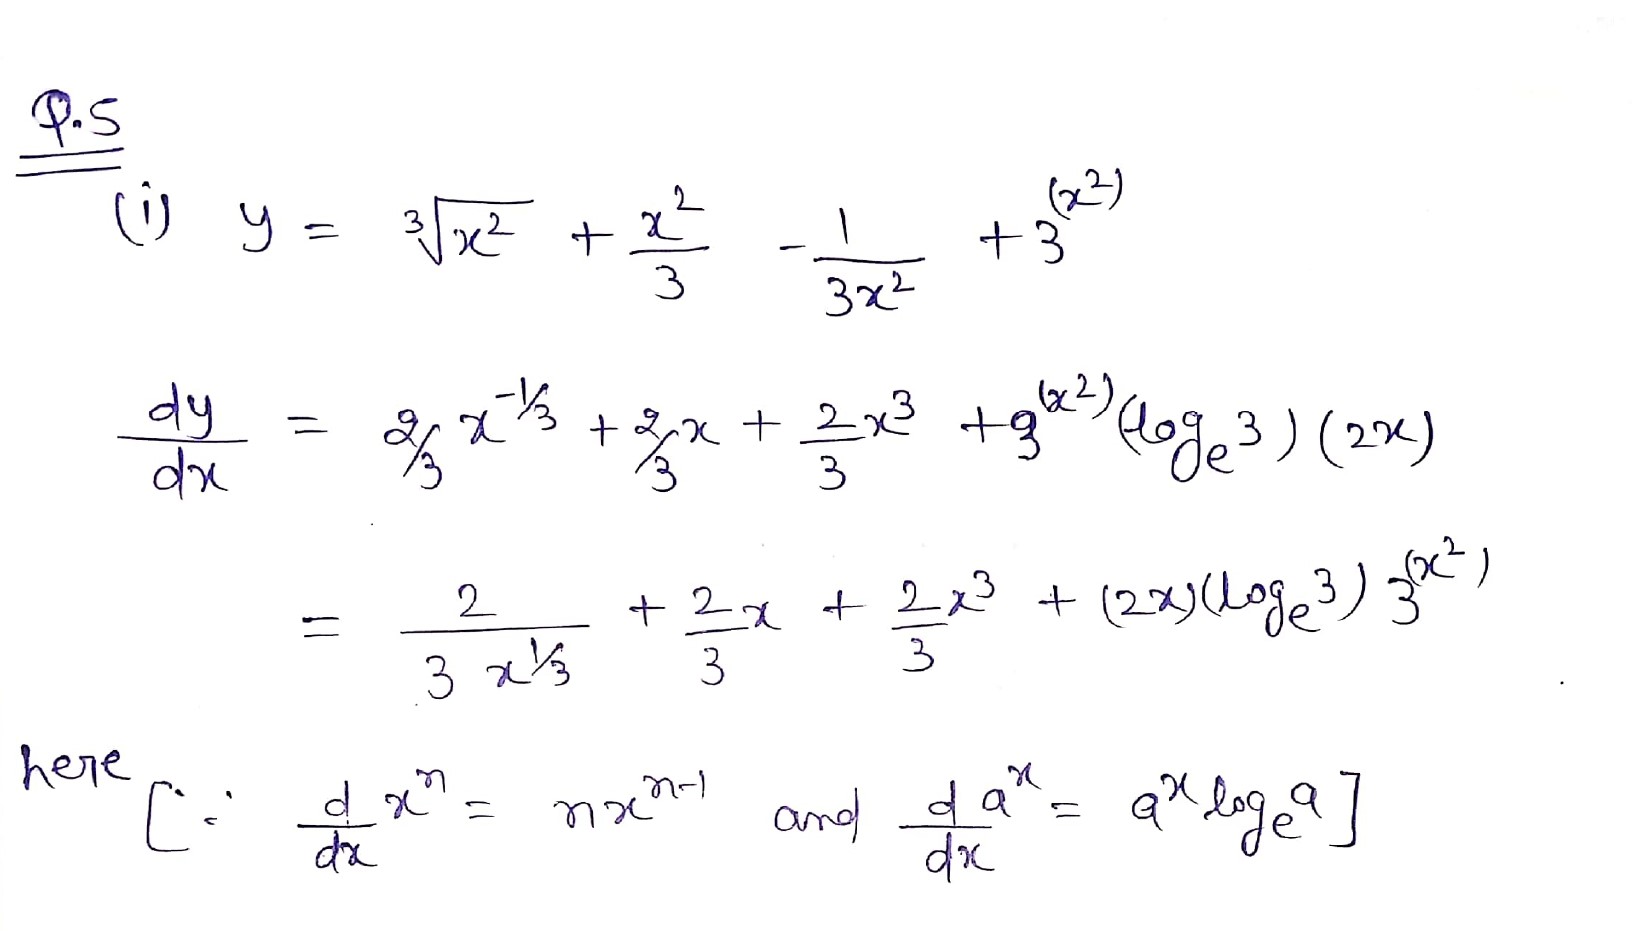 Q.5
(i) y = ∛x² + x²/3 - 1/3x² + 3^(x²)
dy/dx = 2/3 x^-1/3 + 2/3 x + 2/3 x³ + 3^(x²) (log_e 3) (2x)
= 2/3 x^1/3 + 2/3 x + 2/3 x³ + (2x) (log_e 3) 3^(x²)
here [∵ d/dx x^n = n x^n-1 and d/dx a^x = a^x log_e a]